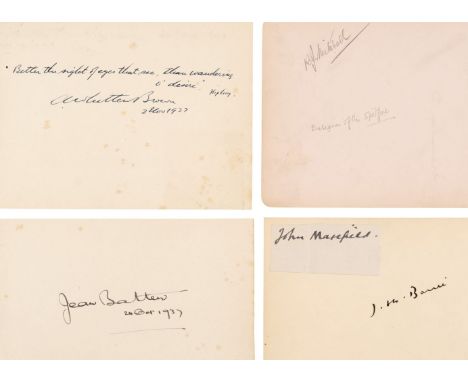 "Better the sight of eyes that see, than wandering
o' desire". Kipling.
A Whitten Brown
2 Nov 1937
R J Mitchell
Designer of the Spitfire
Jean Batten
24 Oct 1937
John Masefield.
J. M. Barrie